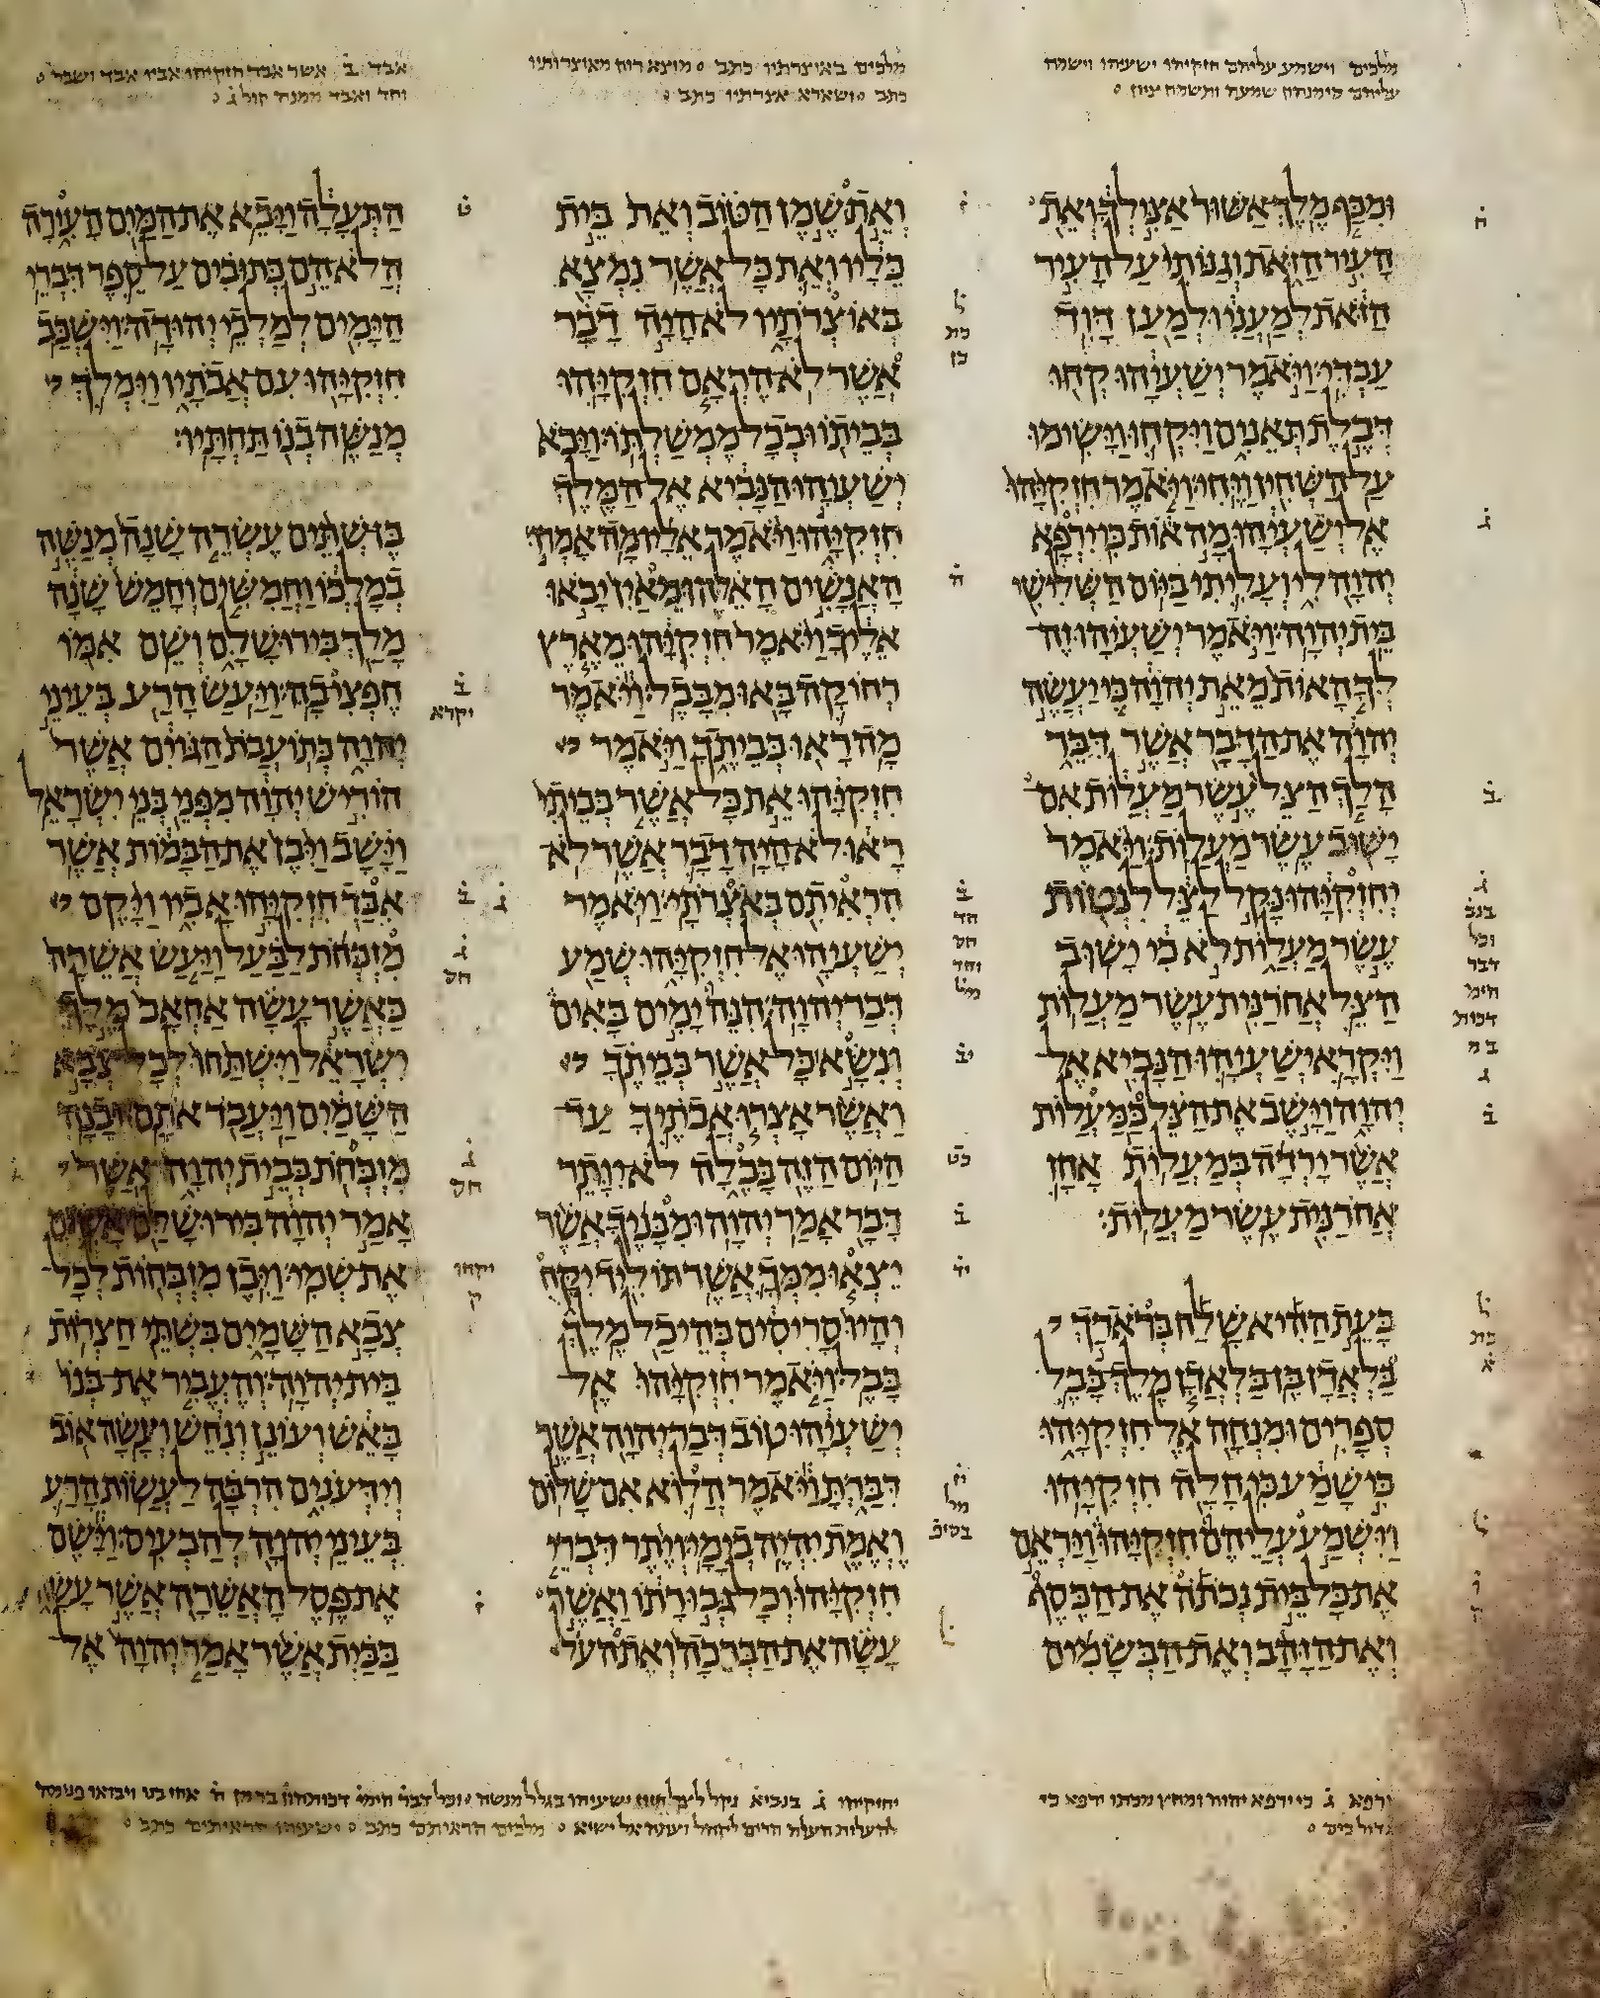 מלכים וישמע עליהם חזקיהו ישעיהו וישמח
עליהם
מלכים באוצרתיו כתב ס מוצא רוח מאוצרותיו
כתב
אבד ב אשר אבד חזקיהו אביו אבד ושבר ס
ומכף מלך אשור אצילך ואת
העיר הזאת וגנותי על העיר
הזאת למעני ולמען דוד
עבדי׃ ויאמר ישעיהו קחו
דבלת תאנים ויקחו וישימו
על השחין ויחי׃ ויאמר חזקיהו
אל ישעיהו מה אות כי ירפא
יהוה לי ועליתי ביום השלישי
בית יהוה׃ ויאמר ישעיהו זה
לך האות מאת יהוה כי יעשה
יהוה את הדבר אשר דבר
הלך הצל עשר מעלות אם
ישוב עשר מעלות׃ ויאמר
יחזקיהו נקל לצל לנטות
עשר מעלות לא כי ישוב
הצל אחרנית עשר מעלות׃
ויקרא ישעיהו הנביא אל
יהוה וישב את הצל במעלות
אשר ירדה במעלות אחז
אחרנית עשר מעלות׃
בעת ההיא שלח בראדך
בלאדן בן בלאדן מלך בבל
ספרים ומנחה אל חזקיהו
כי שמע כי חלה חזקיהו׃
וישמע עליהם חזקיהו ויראם
את כל בית נכתה את הכסף
ואת הזהב ואת הבשמים
ואת שמן הטוב ואת בית
כליו ואת כל אשר נמצא
באוצרתיו לא היה דבר
אשר לא הראם חזקיהו
בביתו ובכל ממשלתו׃ ויבא
ישעיהו הנביא אל המלך
חזקיהו ויאמר אליו מה אמרו
האנשים האלה ומאין יבאו
אליך ויאמר חזקיהו מארץ
רחוקה באו מבבל׃ ויאמר
מה ראו בביתך ויאמר
חזקיהו את כל אשר בביתי
ראו לא היה דבר אשר לא
הראיתם באצרתי׃ ויאמר
ישעיהו אל חזקיהו שמע
דבר יהוה׃ הנה ימים באים
ונשא כל אשר בביתך
ואשר אצרו אבתיך עד
היום הזה בבלה לא יותר
דבר אמר יהוה׃ ומבניך אשר
יצאו ממך אשר תוליד יקח
והיו סריסים בהיכל מלך
בבל׃ ויאמר חזקיהו אל
ישעיהו טוב דבר יהוה אשר
דברת ויאמר הלוא אם שלום
ואמת יהיה בימי׃ ויתר דברי
חזקיהו וכל גבורתו ואשר
עשה את הברכה ואת
התעלה ויבא את המים העירה
הלא הם כתובים על ספר דברי
הימים למלכי יהודה׃ וישכב
חזקיהו עם אבתיו וימלך
מנשה בנו תחתיו׃
בן שתים עשרה שנה מנשה
במלכו וחמשים וחמש שנה
מלך בירושלם ושם אמו
חפצי בה׃ ויעש הרע בעיני
יהוה כתועבת הגוים אשר
הוריש יהוה מפני בני ישראל׃
וישב ויבן את הבמות אשר
אבד חזקיהו אביו ויקם
מזבחת לבעל ויעש אשרה
כאשר עשה אחאב מלך
ישראל וישתחו לכל צבא
השמים ויעבד אתם׃ ובנה
מזבחת בבית יהוה אשר
אמר יהוה בירושלם אשים
את שמי׃ ויבן מזבחות לכל
צבא השמים בשתי חצרות
בית יהוה׃ והעביר את בנו
באש ועונן ונחש ועשה אוב
וידענים הרבה לעשות הרע
בעיני יהוה להכעיס׃ וישם
את פסל האשרה אשר עשה
בבית אשר אמר יהוה אל
ירפא ג כי ירפא יהוה ומחץ מכתו ירפא כי
גדול כים ס
יחזקיהו ג בנביא נקל לצל חזון ישעיהו בגלל מנשה וכל דבר הימי